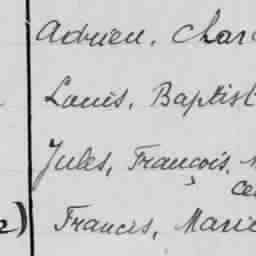 Adrien, Char
Louis, Baptist
Jules, François,
ce
Francis, Marie